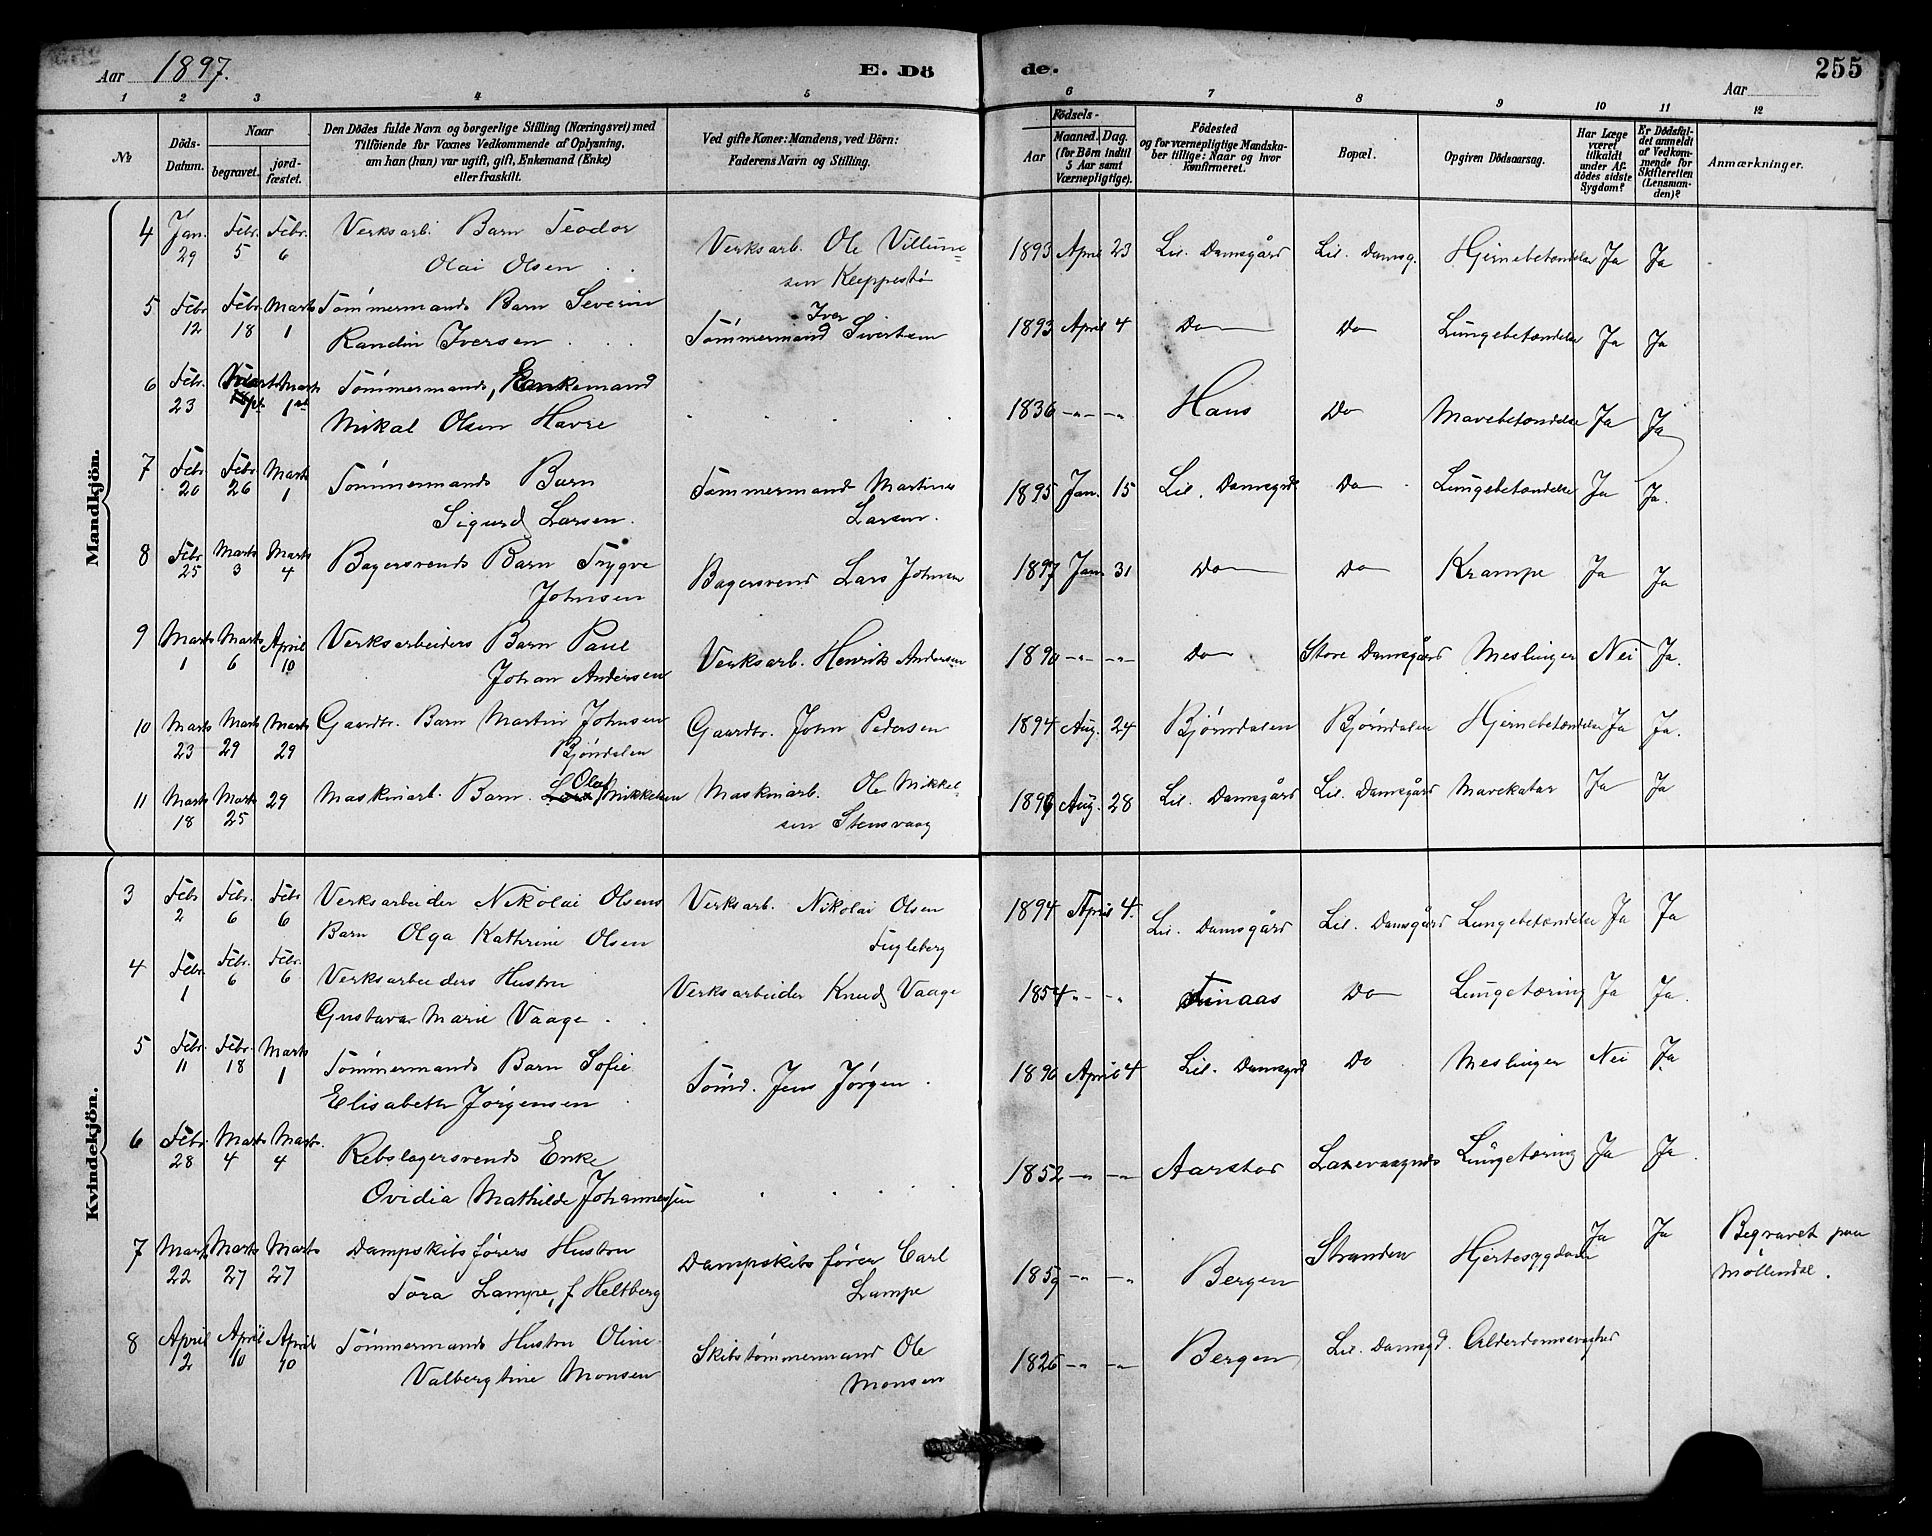 Aar 1897. E. Dö de. Aar 255
1 2 3 4 5 6 7 8 9 10 11 12
№
Döds-Datum.
Naar
begravet.
jordfæstet.
Den Dödes fulde Navn og borgerlige Stilling (Næringsvei) med
Tilföiende for Voxnes Vedkommende af Oplysning,
om han (hun) var ugift, gift, Enkemand (Enke)
eller fraskilt.
Ved gifte Koner: Mandens, ved Börn:
Faderens Navn og Stilling.
Födsels-
Aar
Maaned. Dag.
(for Börn indtil
5 Aar samt
Værnepligtige).
Födested
og for værnepligtige Mandska-
ber tillige: Naar og hvor
konfirmeret.
Bopæl.
Opgiven Dödsaarsag.
Har Læge
været
tilkaldt
under Af-
dödes sidste
Sygdom?
Er Dödsfal-
det anmeldt
af Vedkom-
mende for
Skifteretten
(Lensman-
den)?
Anmærkninger.
Mandkjön.
4 Jan. Febr. Febr. Verksarb. Barn Teodor Verksarb. Ole Villum- 1893 April 23 Lil. Damsgård Lil. Damsg. Hjernebetændelse Ja Ja
29 5 6 Olai Olsen sen Kleppestø
5 Febr. Febr. Marts Tømmermands Barn Severin Iver 1893 April 4 Do Do Lungebetændelse Ja Ja
12 18 1 Randin Iversen Tømmermand Sivertsen
6 Febr. Marts Marts Tømmermands, Enkemand 1836 -"- -"- Haus Do Mavebetændelse Ja Ja
23 1st Mikal Olsen Havre
7 Febr. Febr. Marts Tømmermands Barn Tømmermand Martinus 1895 Jan. 15 Lil. Damsgrd Do Lungebetændelse Ja Ja.
20 26 1 Sigurd Larsen. Larsen.
8 Febr. Marts Marts Bagersvends Barn Trygve Bagersvend Lars Johnsen 1897 Jan. 31 Do Do Krampe Ja Ja
25 3 4 Johnsen
9 Marts Marts April Verksarbeiders Barn Paul Verksarb. Henrik Andersen 1890 -"- -"- Do Store Damsgård Meslinger Nei Ja.
1 6 10 Johan Andersen
10 Marts Marts Marts Gaardbr. Barn Martin Johnsen Gaardbr. John Pedersen 1894 Aug. 24 Bjørndalen Bjørndalen Hjernebetændelse Ja Ja.
23 29 29 Bjöndalen
11 Marts Marts 29 Maskinarb. Barn. Olaf Mikkelsen Maskinarb. Ole Mikkel- 1896 Aug. 28 Lil. Damsgård Lil. Damsgård Mavekatar Ja Ja
18 25 sen Stensvaag
Kvindekjön.
3 Febr Febr. Febr Verksarbeider Nikolai Olsens Verksarb. Nikolai Olsen 1894 April 4. Lil. Damsgård Lil. Damsgård Lungebetændelse Ja Ja
2 6 6 Barn Olga Kathrine Olsen Fugleberg
4 Febr. Febr. Febr. Verksarbeiders Hustru Verksarbeider Knud Vaage 1854 -"- -"- Finaas Do Lungetæring Ja Ja.
1 6 6 Gustava Marie Vaage.
5 Febr. Febr. Marts Tømmermands Barn Sofie Tømd. Jens Jørgen. 1890 April 4 Lil. Damsgrd Do Meslinger Nei Ja
11 18 1 Elisabeth Jørgensen
6 Febr. Marts Marts. Rebslagersvends Enke 1852 -"- -"- Aarstad Laxevaagnds Lungetæring Ja Ja.
28 4 4 Ovidia Mathilde Johannessen
7 Marts Marts Marts Dampskibsførers Hustru Dampskibsfører Carl 1859 -"- -"- Bergen Stranden Hjertesygdom Ja Ja Begravet paa
22 27 27 Tora Lampe, f Heltberg Lampe Møllendal.
8 April April April Tømmermands Hustru Oline Skibstømmermand Ole 1826 -"- -"- Bergen Lil. Damsgd. Alderdomssvaghed
2 10 10 Valbergtine Monsen Monsen